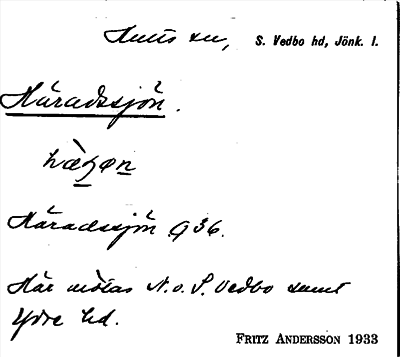 Hults sn, S. Vedbo hd, Jönk. l.
Häradssjön.
Häradssjön G36.
Här mötas N. o. S. Vedbo samt
Ydre hd.
FRITZ ANDERSSON 1933